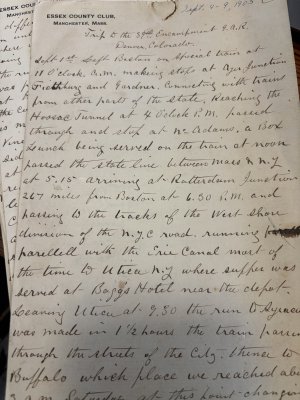 ESSEX COUNTY CLUB,
MANCHESTER, MASS.
Sept. 4-9, 1905
Trip to the 39th Encampment G.A.R.
Denver, Colorado.
Sept 1st Left Boston on Special train at
11 O'clock A.M. making stops at Ayer Junction
Fitchburg and Gardner, Connecting with trains
from other parts of the State, Reaching the
Hoosac Tunnel at 4 O'clock P.M. passed
through and stop at No Adams, a Box
Lunch being served on the train at noon
passed the state line between Mass & N.Y
at 5.15 arriving at Rotterdam Junction
267 miles from Boston at 6.30 P.M. and
passing to the tracks of the West Shore
division of the N.Y.C road, running
parellell with the Erie Canal most of
the time to Utica N.Y where supper was
served at Baggs Hotel near the depot.
Leaving Utica at 9.30 the run to Syracu
was made in 1½ hours the train passin
through the streets of the City. thence to
Buffalo which place we reached abo
3 a.m. Saturday at this point changin